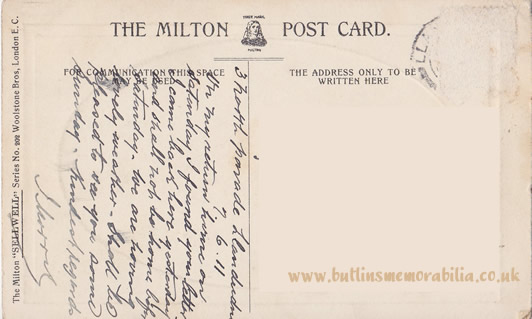 THE MILTON POST CARD.
TRADE MARK
MILTON
FOR COMMUNICATION THIS SPACE
MAY BE USED
THE ADDRESS ONLY TO BE
WRITTEN HERE
The Milton "SELLWELL" Series No. 202 Woolstone Bros, London E.C.
3 North Parade Llandudno
7. 6. 11
On my return home on
Saturday I found your letter
I came back here yesterday
and shall not be home before
Saturday - We are having
lovely weather - Shall be
pleased to see you some
Sunday - Kindest regards
www.butlinsmemorabilia.co.uk